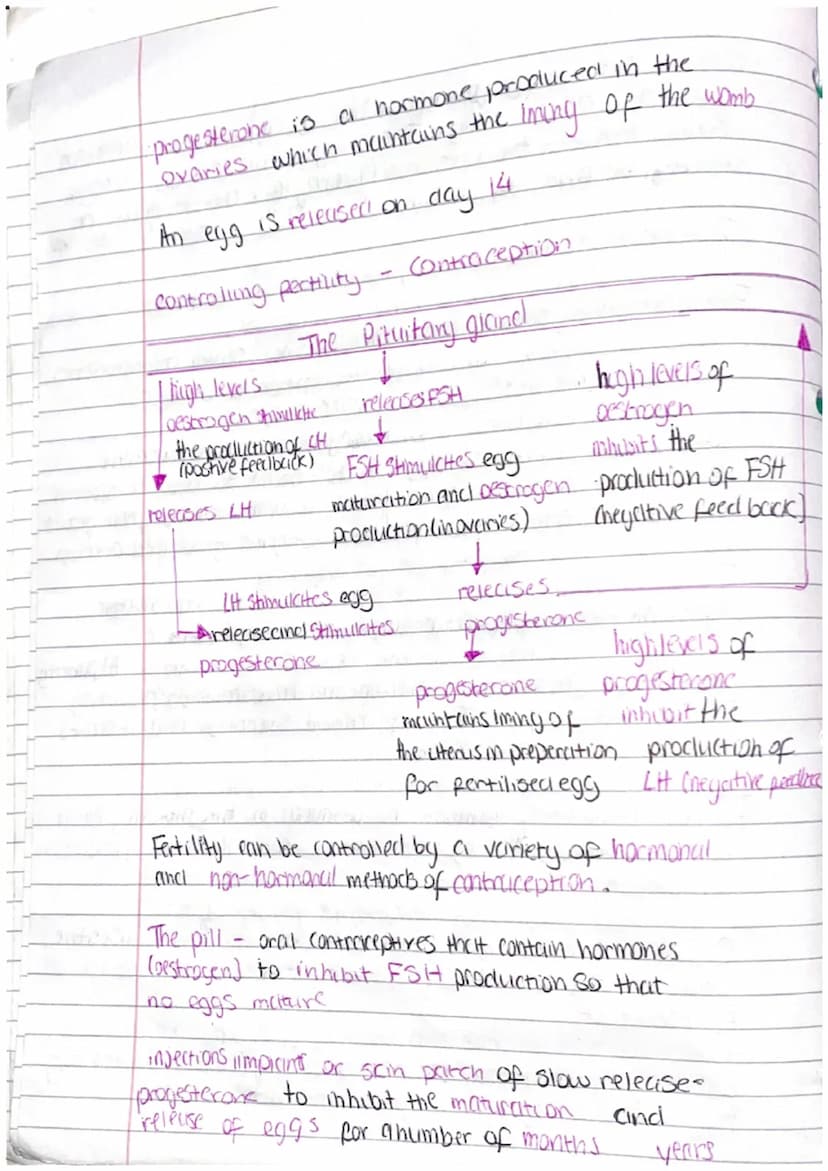 progesterone is a hormone produced in the
ovaries which maintains the lining of the womb
An egg is released on day 14
controlling fertility - contraception
The Pituitary gland
high levels
oestrogen stimulate
the production of LH
(postive feedback)
releases LH
LH stimulates egg
release and stimulates
progesterone
releases FSH
FSH stimulates egg
maturation and oestrogen
production (in ovaries)
releases
progesterone
progesterone
maintains lining of
the uterus in preperation
for fertilised egg
high levels of
oestrogen
inhibits the
production of FSH
(negative feedback)
high levels of
progesterone
inhibit the
production of
LH (negative feedback
Fertility can be controlled by a variety of hormonal
and non-hormonal methods of contraception.
The pill - oral contraceptives that contain hormones
(oestrogen) to inhibit FSH production so that
no eggs mature
injections implant or skin patch of slow release-
progesterone to inhibit the maturation and
release of eggs for a number of months years